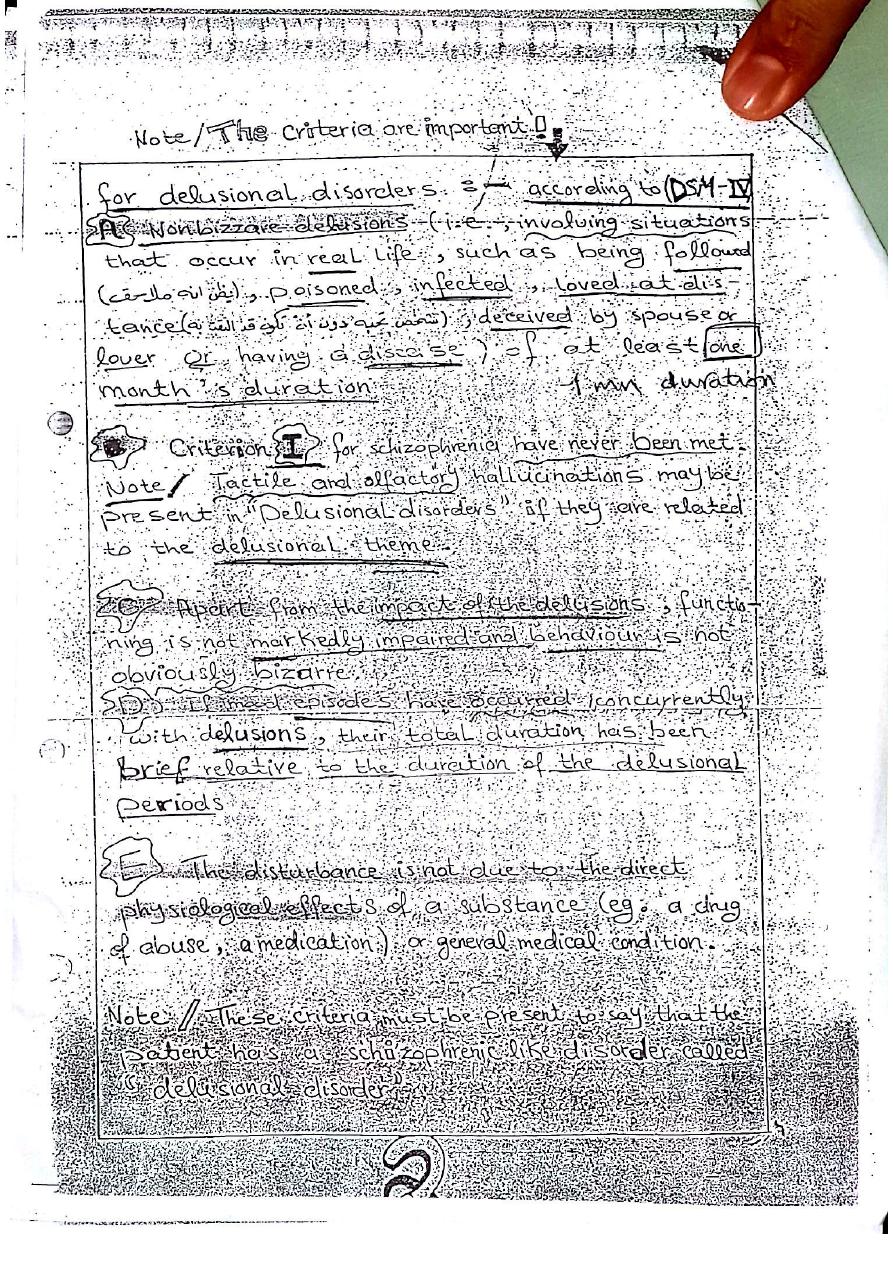 Note/The criteria are important!
for delusional disorders :- according to (DSM-IV)
A: Nonbizzare delusions (i.e., involving situations
that occur in real life, such as being followed
(يظن انه ملاحق), poisoned, infected, loved at dis-
tance (شخص يحبه دون أن تكون قد التقت به), deceived by spouse or
lover or having a disease) of at least one
month's duration
1 mn duration
Criterion I for schizophrenia have never been met.
Note/ Tactile and olfactory hallucinations may be
present in "Delusional disorders" if they are related
to the delusional theme.
C: Apart from the impact of the delusions, functio
ning is not markedly impaired and behaviour is not
obviously bizarre.
D: If mood episodes have occurred concurrently
with delusions, their total duration has been
brief relative to the duration of the delusional
periods
E The disturbance is not due to the direct
physiological effects of a substance (eg: a drug
of abuse, a medication) or general medical condition.
Note// These criteria must be present to say that the
patient has a schizophrenic like disorder called
"delusional disorder"
2